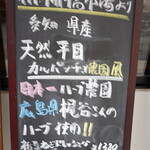 より
愛知 県産
天然 平目
カルパッチョ農園風
日本一ハーブ農園
広島県 梶谷さんの
ハーブ使用!!
¥1380